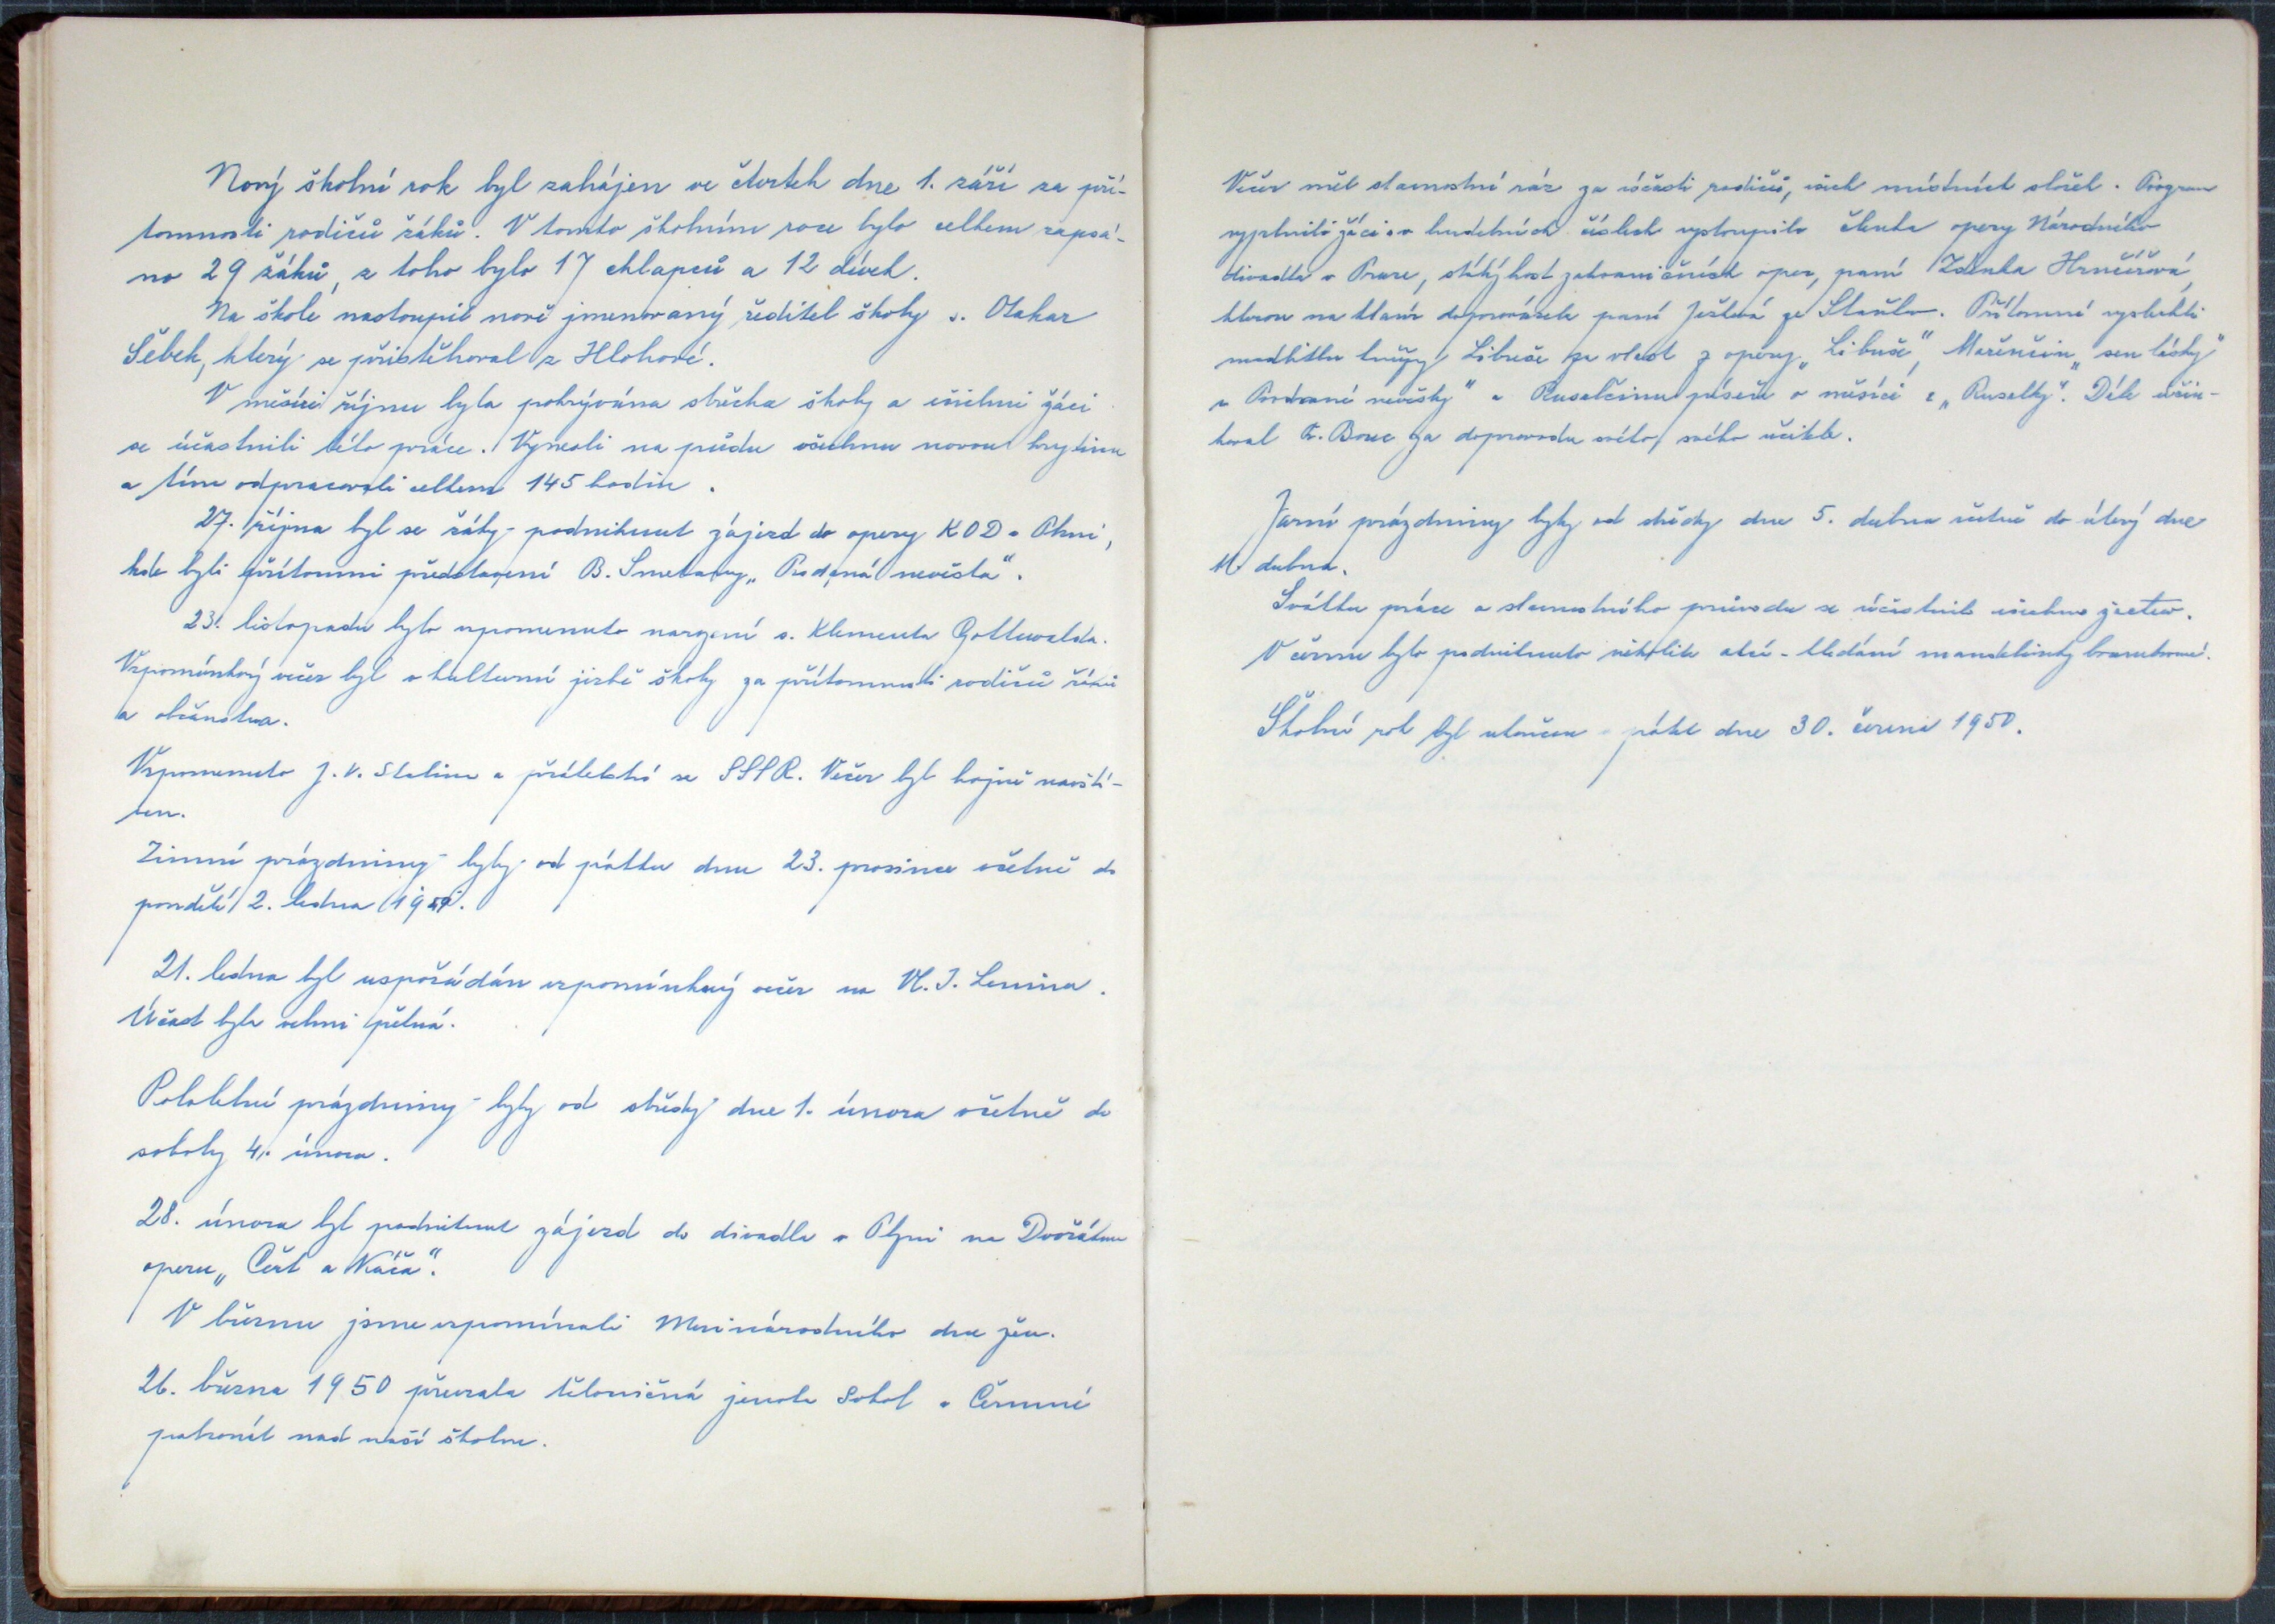 Nový školní rok byl zahájen ve čtvrtek dne 1. září za pří-
tomnosti rodičů žáků. V tomto školním roce bylo celkem zapsá-
no 29 žáků, z toho bylo 17 chlapců a 12 dívek.
Na škole nastoupil nově jmenovaný ředitel školy s. Otakar
Šebek, který se přistěhoval z Hlohové.
V měsíci říjnu byla pokrývána střecha školy a všichni žáci
se účastnili této práce. Vynesli na půdu všechnu novou krytinu
a tím odpracovali celkem 145 hodin.
27. října byl se žáky podniknut zájezd do opery KOD v Plzni,
kde byli přítomni představení B. Smetany „Prodaná nevěsta“.
23. listopadu bylo vzpomenuto narození s. Klementa Gottwalda.
Vzpomínkový večer byl v kulturní jizbě školy za přítomnosti rodičů žáků
a občanstva.
Vzpomenuto J. V. Stalina a přátelství se SSSR. Večer byl hojně navští-
ven.
Zimní prázdniny byly od pátku dne 23. prosince včetně do
pondělí 2. ledna
21. ledna byl uspořádán vzpomínkový večer na Vl. I. Lenina.
Účast byla velmi pěkná.
Pololetní prázdniny byly od středy dne 1. února včetně do
soboty 4. února.
28. února byl podniknut zájezd do divadla v Plzni na Dvořákovu
operu „Čert a Káča“.
V březnu jsme vzpomínali Mezinárodního dne žen.
26. března 1950 převzala tělovičná jenota Sokol v Čermné
patronát nad naší školou.
Večer měl slavnostní ráz za účasti rodičů, všech místních složek. Program
vyplnili žáci a v hudebních číslech vystoupila členka opery Národního
divadla v Praze, stálý host zahraničních oper, paní Zdenka Hrnčířová,
kterou na klavír doprovázela paní ze Staňkova. Přítomní vyslechli
modlitbu kněžny Libuše za vlast z opery „Libuše“, Mařenčin „sen lásky“
z Prodané nevěsty“ a Rusalčinu píseň o měsíci z „Rusalky“. Dále účin-
koval Fr. za doprovodu svého učitele.
Jarní prázdniny byly od středy dne 5. dubna včetně do úterý dne
11. dubna.
Svátku práce a slavnostního průvodu se účastnilo všechno žactvo.
V červnu bylo podniknuto několik akcí - hledání mandelinky bramborové.
Školní rok byl ukončen v pátek dne 30. června 1950.